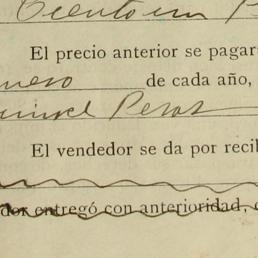 El precio anterior se pagar
de cada año,
Pesos
El vendedor se da por recib
dor entregó con anterioridad,